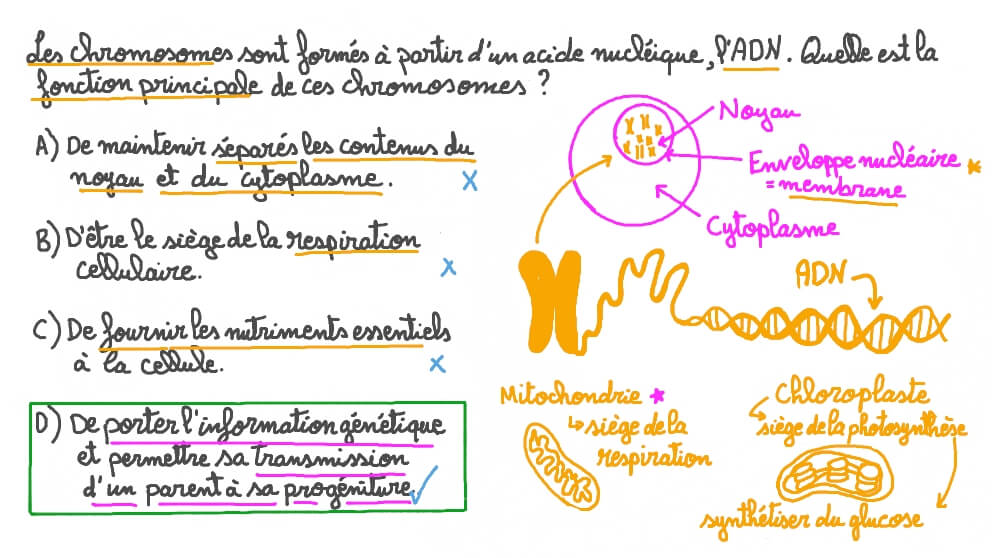 Les chromosomes sont formés à partir d'un acide nucléique, l'ADN. Quelle est la
fonction principale de ces chromosomes ?
A) De maintenir séparés les contenus du
noyau et du cytoplasme. x
B) D'être le siège de la respiration
cellulaire. x
C) De fournir les nutriments essentiels
à la cellule. x
D) De porter l'information génétique
et permettre sa transmission
d'un parent à sa progéniture. ✓
Noyau
Enveloppe nucléaire *
= membrane
Cytoplasme
ADN
Mitochondrie *
↳ siège de la
respiration
Chloroplaste
siège de la photosynthèse
synthétiser du glucose